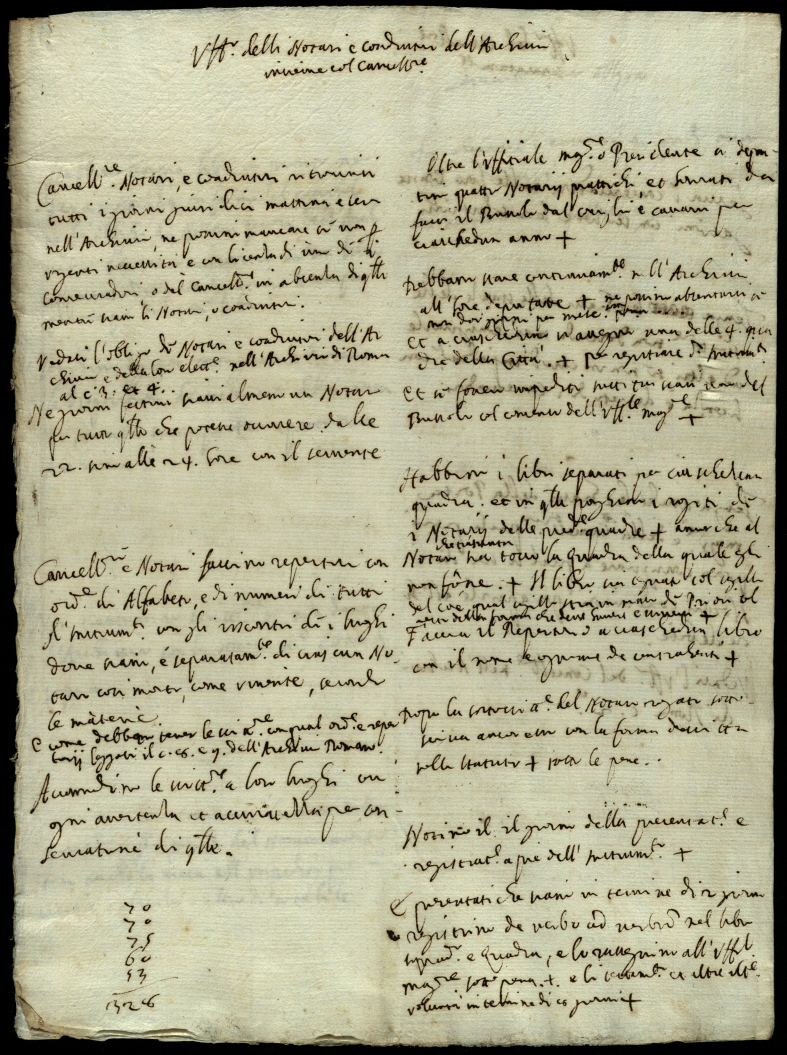 Uff.º delli Notari e coadiutori dell'Archivii
insieme col Cancell.re
Cancell.re Notari, e coadiutori si trovino
tutti i giorni juridici mattina e sera
nell'Archivii, ne possino mancare se non p
urgenti necessità, e con licentia di uno de
o del Cancell.re in absentia di qlli
siano li Notari, o coadiutori.
Vedasi l'obligo de Notari e coadiutori dell'Ar
chivii e della loro elett.e nell'Archivii di Roma
al c. 3. et 4.
Ne giorni festivi stiavi almeno un Notaro
per tutto qllo che potesse occorrere dalle
22. sino alle 24. hore con il
Cancell.ri e Notari faccino repertorii con
ord.e di Alfabeto, e di numeri di tutti
l'instrum.ti con gli riscontri di i luoghi
dove siano, e separatam.te di ciascun No-
taro cosi morto, come vivente, secondo
le materie.
E come debban tener le scritt.e con qual ord.e e reper
torij leggasi il c. 8. e 9. dell'Archivii Romano.
Accomodino le scritt.e a loro luoghi con
ogni avertenza et accuratezza per con-
servatione di qlle.
70
70
75
60
53
328
Oltre l'Uffitiale mag.re o Presidente si depu-
tino quattro Notarij prattichi et honorati da
farsi il Bussolo dal consiglio e cavarsi per
ciaschedun anno +
Debbano stare continuam.te nell'Archivii
all'hore deputate + ne possino absentarsi se
non doi giorni per mese
et a ciaschedun si assegni una delle 4. qua
dre della Città. + per registrare d.i instrum.ti
Et se fossero impediti
Bussolo col consenso dell'Uff.le mag.re +
Habbino i libri separati per ciaschedun
quadra. et in qlli i rogiti de
i Notarij delle pred.e quadre + ancorche al
Notaro sia tocco la quadra della quale egli
non fosse. + Il libro sia
del
della forma che deve
Faccia il Repertorio a ciaschedun libro
con il nome e cognome de contrahenti +
Dopo la sottoscritt.e del Notaro rogato sotto-
scriva ancor esso con la forma descritta
nello statuto + sotto le pene..
Notino il il giorno della presentat.e e
registrat.e a pie dell'instrum.to +
E presentati che siano in termine di 2 giorni
registrino de verbo ad verbum nel libro
sopradº. e Quadra, e lo rassegnino all'Uff.le
mag.re sotto pena. +. e li testam.ti et altre ult.e
volontà in termine di 8 giorni +